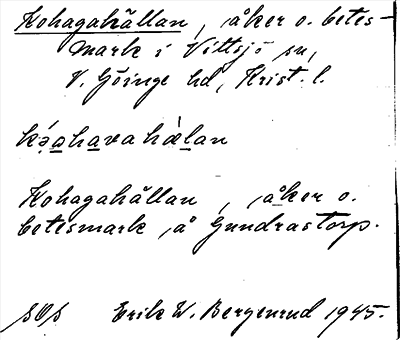 Kohagahällan, åker o. betes-
mark i Vittsjö sn,
V. Göinge hd, Krist. l.
Kohagahällan, åker o.
betesmark, å Gundrastorp.
Erik W. Bergenrud 1945.